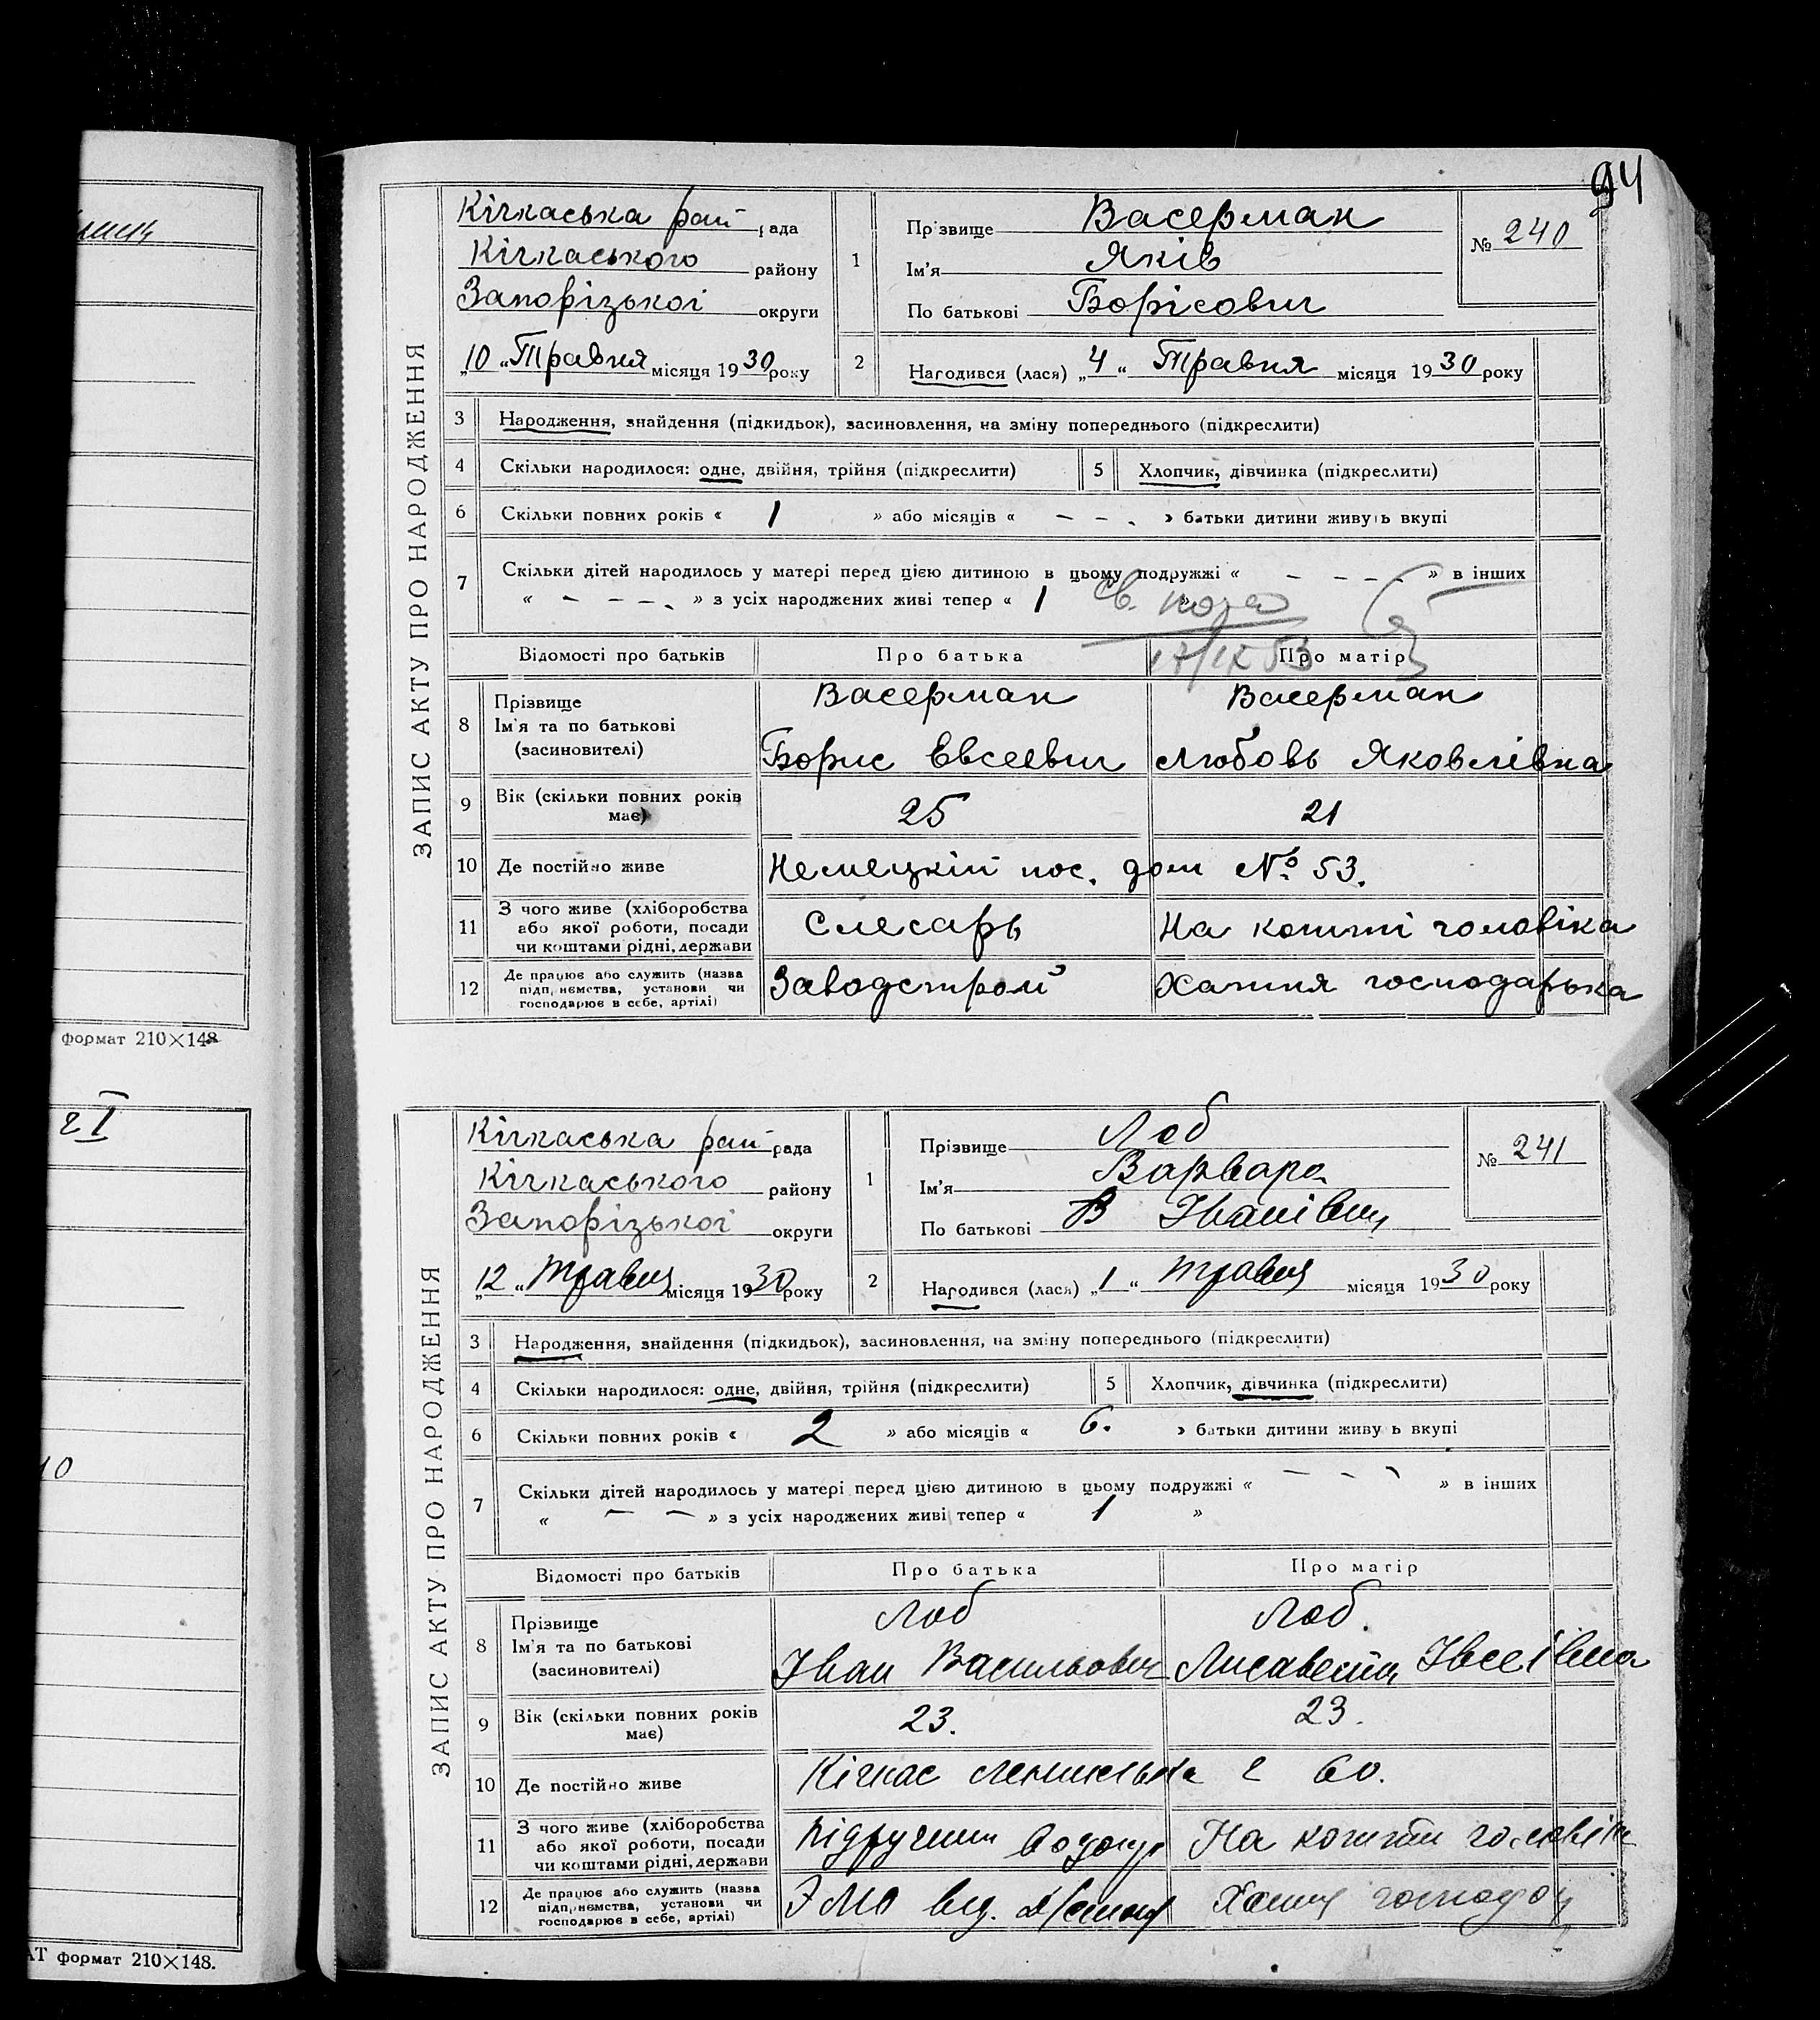 94
ЗАПИС АКТУ ПРО НАРОДЖЕННЯ
Кічкаська рай рада
Кічкаського району
Запорізькоі округи
„10 “ Травня місяця 1930 року
1
Прізвище Васерман
Ім'я Яків
По батькові Борісович
№ 240
2 Народився (лася) „4 “ Травня місяця 1930 року
3 Народження, знайдення (підкидьок), засиновлення, на зміну попереднього (підкреслити)
4 Скільки народилося: одне, двійня, трійня (підкреслити) 5 Хлопчик, дівчинка (підкреслити)
6 Скільки повних років « 1 » або місяців « – – . » батьки дитини живуть вкупі
7 Скільки дітей народилось у матері перед цією дитиною в цьому подружжі « – – – – » в інших
« – – – –. » з усіх народжених живі тепер « 1 »
17/IX 53
Відомості про батьків Про батька Про матір
8 Прізвище Васерман Васерман
Ім'я та по батькові
(засиновителі) Борис Евсеевич Любовь Яковлівна
9 Вік (скільки повних років має) 25 21
10 Де постійно живе Немецкій пос. дом № 53.
11 З чого живе (хліборобства
або якої роботи, посади
чи коштами рідні, держави Слесарь На кошті чоловіка
12 Де працює або служить (назва
підприємства, установи чи
господарює в себе, артілі) Заводстрой Хатня господарька
ЗАПИС АКТУ ПРО НАРОДЖЕННЯ
Кічкаська рай рада
Кічкаського району
Запорізькоі округи
„12 “ травня місяця 1930 року
1
Прізвище Лоб
Ім'я Варвара
По батькові В Іванівна
№ 241
2 Народився (лася) „1 “ травня місяця 1930 року
3 Народження, знайдення (підкидьок), засиновлення, на зміну попереднього (підкреслити)
4 Скільки народилося: одне, двійня, трійня (підкреслити) 5 Хлопчик, дівчинка (підкреслити)
6 Скільки повних років « 2 » або місяців « 6. » батьки дитини живу ь вкупі
7 Скільки дітей народилось у матері перед цією дитиною в цьому подружжі « – – – » в інших
« – – » з усіх народжених живі тепер « 1 »
Відомості про батьків Про батька Про матір
8 Прізвище Лоб Лоб.
Ім'я та по батькові
(засиновителі) Іван Васильович Лисавета Івсеівна
9 Вік (скільки повних років має) 23. 23.
10 Де постійно живе Кічкас 60.
11 З чого живе (хліборобства
або якої роботи, посади
чи коштами рідні, держави Підручний На кошти чоловіка
12 Де працює або служить (назва
підприємства, установи чи
господарює в себе, артілі) Хатня господар
формат 210×148
АТ формат 210×148.